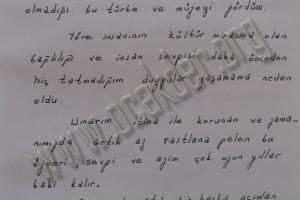 olmadığı bu türbe ve müzeyi gördüm.
Yöre insanının kültür mirasına olan
bağlılığı ve insan sevgisi daha önceden
hiç tatmadığım duygular yaşamama neden
oldu.
Umarım itina ile korunan ve zama-
nımızda artık az rastlana gelen bu
özveri, sevgi ve azim çok uzun yıllar
baki kalır.
bir başka açıdan